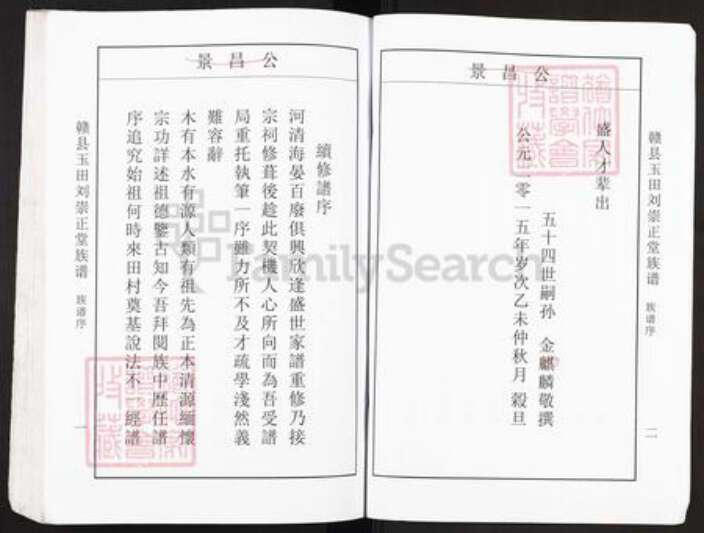 公昌景
赣县玉田刘崇正堂族谱
族谱序
二
盛人才辈出
五十四世嗣孙 金麒麟敬撰
公元二零一五年岁次乙未仲秋月 榖旦
公昌景
續修譜序
河清海晏百廢俱興欣逢盛世家譜重修乃接
宗祠修葺後趁此契機人心所向而為吾受譜
局重托執筆一序雖力所不及才疏學淺然義
難容辭
木有本水有源人類有祖先為正本清源緬懷
宗功詳述祖德鑒古知今吾拜閱族中歷任譜
序追究始祖何時來田村奠基說法不一經譜
赣县玉田刘崇正堂族谱
族谱序
一
FamilySearch